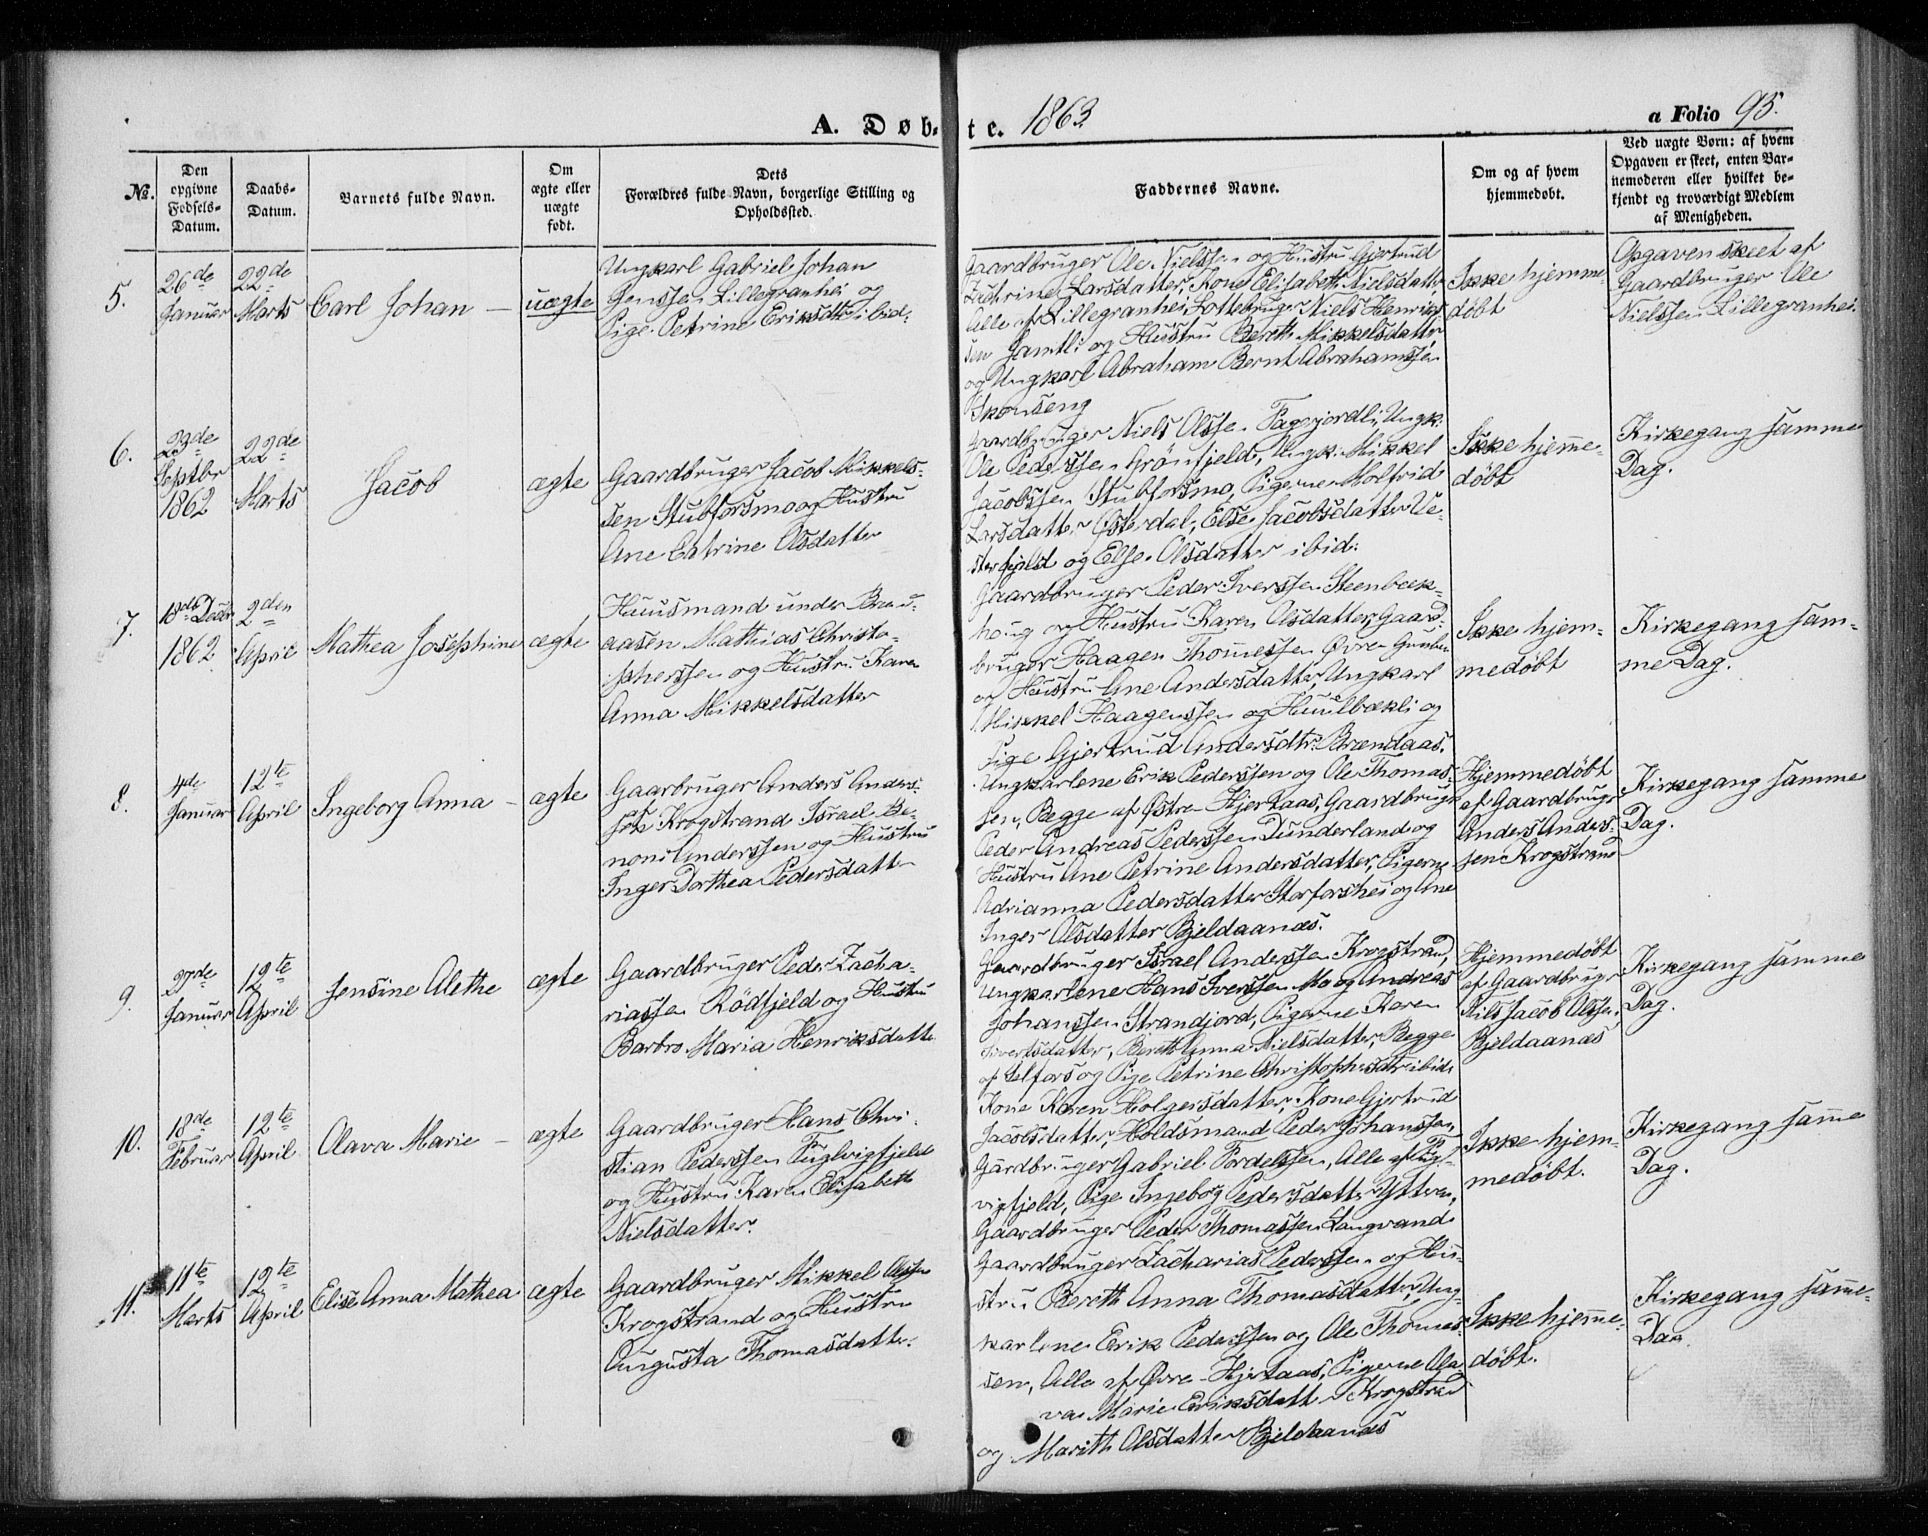 A. Døbte. 1863.
a Folio 95.
No.
Den opgivne Fødsels-Datum.
Daabs-Datum.
Barnets fulde Navn.
Om ægte eller uægte født.
Dets Forældres fulde Navn, borgerlige Stilling og Opholdssted.
Faddernes Navne.
Om og af hvem hjemmedøbt.
Ved uægte Børn: af hvem Opgaven er skeet, enten Barnemoderen eller hvilket bekjendt og troværdigt Medlem af Menigheden.
5.
26de Januar
22de Marts
Carl Johan —
uægte
Ungkarl Gabriel Johan
Jenssen Lillegranhei og
Pige Petrine Eriksdtr ibid:
Gaardbruger Ole Nielssen og Hustru Gjertrud
Zachrine Larsdatter, Kone Elisabeth Nielsdatter,
Alle af Lillegranhei, Lottebruger Niels Henrik-
sen Jamtli og Hustru Bereth Mikkelsdatter
og Ungkarl Abraham Bernt Abrahamssen
Skonseng
Ikke hjemme-
døbt
Opgaven skeet af
Gaardbruger Ole
Nielssen Lillegranhei.
6.
29de Septbr 1862
22de Marts
Jacob
ægte
Gaardbruger Jacob Mikkels-
sen Stubforsmo og Hustru
Ane Catrine Olsdatter
Gaardbruger Niels Olsse. Fagerjordli, Ungk:
Ole Pederssen Grönfjeld, Ungk. Mikkel
Jacobssen Stubforsmo, Pigerne Molfrid
Larsdatter Østerdal, Else Jacobsdatter Ve-
sterfjeld og Else Olsdatter ibid:
Ikke hjem̅e-
døbt
Kirkegang samme
Dag.
7.
18de Decbr 1862
2den April
Mathea Josephine
ægte
Huusmand under Bræn-
aasen Mathias Christo-
pherssen og Hustru Karen
Anna Mikkelsdatter
Gaardbruger Peder Iverssen Steenbæk-
houg og Hustru Karen Olsdatter, Gaard-
bruger Haagen Thom̅essen Øvre Gruben
og Hustru Ane Andersdatter, Ungkarl
Mikkel Haagenssen og Huulbækli og
Pige Gjertrud Andersdtr. Brændaas.
Ikke hjem-
medøbt
Kirkegang sam-
me Dag.
8.
4de Januar
12te April
Ingeborg Anna —
ægte
Gaarbruger Anders Anders-
sen Krogstrand Israel Be-
noni Anderssen og Hustru
Inger Dorthea Pedersdatter
Ungkarlene Erik Pederssen og Ole Thomas-
sen, Begge af Østre Hjertaas, Gaardbruger
Peder Andreas Pederssen Dunderland og
Hustru Ane Petrine Andersdatter, Pigerne
Adrianna Pedersdatter Storforshei og Ane
Inger Olsdatter Bjeldaanæs.
Hjemmedøbt
af Gaardbruger
Anders Anders-
sen Krogstrand
Kirkegang samme
Dag.
9.
27de Januar
12te April
Jensine Alethe
ægte
Gaardbruger Peder Zacha-
riassen Rödfjeld og Hustru
Barbro Maria Henriksdatter
Gaardbruger Israel Anderssen Krogstrand,
Ungkarlene Hans Iverssen Mo og Andreas
Johanssen Strandjord, Pigerne Karen
Sivertsdatter, Bereth Anna Nielsdatter, Begge
af Selfors og Pige Petrine Christophersdtr ibid.
Hjemmedøbt
af Gaardbruger
Nils Jacob Olssen
Bjeldaanæs
Kirkegang samme
Dag.
10.
18de Februar
12te April
Olava Marie —
ægte
Gaardbruger Hans Chri-
stian Pederssen Fuglvigfjeld
og Hustru Karen Elisabeth
Nielsdatter.
Kone Karen Holgersdatter, Kone Gjertrud
Jacobsdatter, Holdsmand Peder Johanssen,
Gardbruger Gabriel Tordelssen, Alle af Fugl-
vigfjeld, Pige Ingeborg Pedersdatter Ytteren,
Gaardbruger Peder Thomassen Langvand.
Ikke hjem-
medøbt.
Kirkegang sam̅e
Dag.
11.
11te Marts
12te April
Elise Anna Mathea
ægte
Gaardbruger Mikkel Olssen
Krogstrand og Hustru
Augusta Thomasdatter.
Gaardbruger Zacharias Pederssen og Hu-
stru Bereth Anna Thomasdatter, Ung-
karlene Erik Pederssen og Ole Thomas-
sen, Alle af Øvre-Hjertaas, Pigerne Ola-
va Marie Eriksdatter Krogstrand
og Marith Olsdatter Bjeldaanæs
Ikke hjem̅e-
døbt.
Kirkegang sam̅e-
Dag